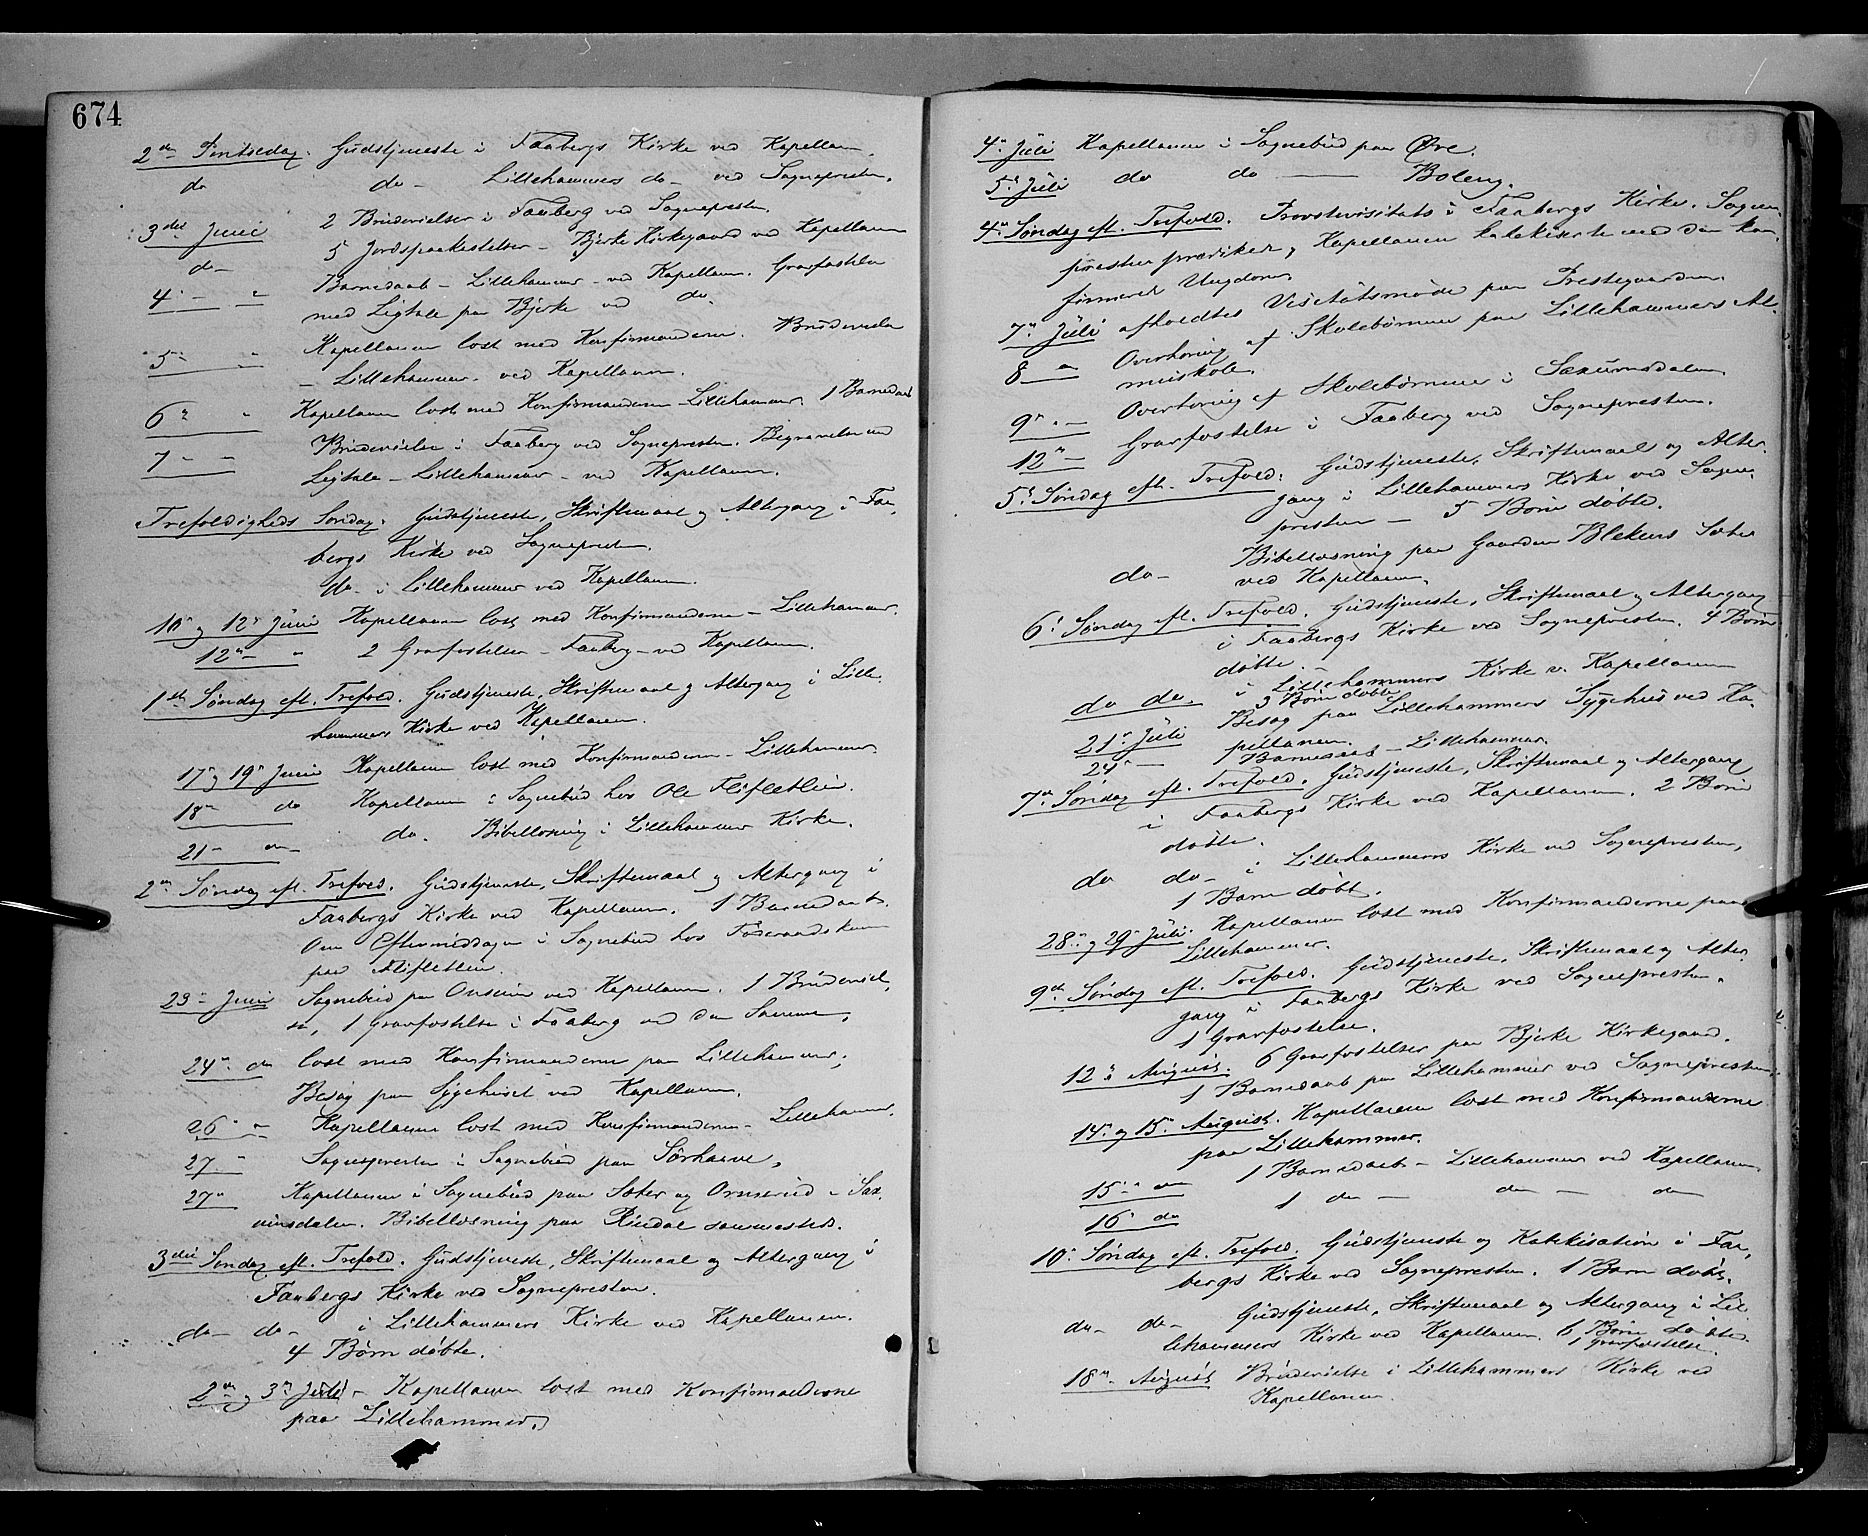 674
2den Pintsedag. Gudstjeneste i Faabergs Kirke ved Kapellanen.
do do – Lillehammers do – ved Sognepresten.
3die Juni 2 Brudevielser i Faaberg ved Sognepresten.
do – 5 Jordspaakastelser – Bjerke Kirkegaard ved Kapellanen
4 – " Barnedaab – Lillehammer – ved Kapellanen. Gravfæstelse
med Ligtale paa Bjerke ved do.
5 – " Kapellanen læst med Konfirmanderne. Brudevielse
– Lillehammer. ved Kapellanen.
6 " Kapellanen læst med Konfirmanderne Lillehammer. 1 Barnedaab
7 – " Brudevielse i Faaberg ved Sognepresten. Begravelse med
Ligtale – Lillehammer – ved Kapellanen.
Trefoldigheds Søndag. Gudstjeneste, Skriftemaal og Altergang i Faa-
bergs Kirke ved Sognepresten.
do – i Lillehammer ved Kapellanen.
10 og 12 Juni Kapellanen læst med Konfirmanderne – Lillehammer.
12 – " 2 Gravfæstelser – Faaberg – ved Kapellanen.
1ste Søndag eft. Trefold. Gudstjeneste, Skriftemaal og Altergang i Lille-
hammers Kirke ved Kapellanen.
17 og 19 Juni Kapellanen læst med Konfirmanderne – Lillehammer.
18 do Kapellanen i Sognebud hos Ole Flifletlien.
21 – " – do. Bibellæsning i Lillehammer Kirke.
2en Søndag eft. Trefold. Gudstjeneste, Skriftemaal og Altergang i
Faabergs Kirke ved Kapellanen. 1 Barnedaab.
Om Eftermiddagen i Sognebud hos Føderaadskonen
paa Flifletlien.
23 – Juni Sognebud paa Onsum ved Kapellanen. 1 Brudeviel-
se, 1 Gravfæstelse i Faaberg ved den Samme.
24 do læst med Konfirmanderne paa Lillehammer,
Besøg paa Sygehuset ved Kapellanen.
26 " Kapellanen læst med Konfirmanderne – Lillehammer.
27 " Sognepresten i Sognebud paa Sørhaave.
27 " Kapellanen i Sognebud paa Sæter og Ornerud i Sax-
umsdalen. Bibellæsning paa Rindal sammesteds.
3die Søndag eft. Trefold. Gudstjeneste, Skriftemaal og Altergang i
Faabergs Kirke ved Sognepresten.
do – do – i Lillehammers Kirke ved Kapellanen.
4 Børn døbte.
2en og 3 Juli – Kapellanen læst med Konfirmanderne
paa Lillehammer.
4 Juli Kapellanen i Sognebud paa Øve.
5 Juli do do — Boleng.
4 Søndag eft. Trefold. Provstevisitats i Faabergs Kirke. Sogne-
presten præsker, Kapellanen katekiserte med den kon-
firmerte Ungdom.
7 Juli afholdtes Visitatsmøde paa Prestegaarden.
8 – " Overhøring af Skolebørnene paa Lillehammers Al-
mueskole.
9 " – Overhøring af Skolebørnene i Saxumsdalen
12 " – Gravfæstelse i Faaberg ved Sognepresten.
5 Søndag eft. Trefold: Gudstjeneste, Skriftemaal og Alter-
gang i Lillehammers Kirke ved Sogne-
presten – 5 Børn døbte.
do – Bibellæsning paa Gaarden Blekens Sæter
ved Kapellanen.
6 Søndag eft. Trefold. Gudstjeneste, Skriftemaal og Altergang
i Faabergs Kirke ved Sognepresten. 4 Børn
døbte.
do do. i Lillehammers Kirke v. Kapellanen
3 Børn døbte.
21 Juli Besøg paa Lillehammers Sygehus ved Ka-
pellanen.
24 – 1 Barnedaab – Lillehammer.
7 Søndag eft. Trefold. Gudstjeneste, Skriftemaal og Altergang
i Faabergs Kirke ved Kapellanen. 2 Børn
døbte.
do do – i Lillehammers Kirke ved Sognepresten,
1 Barn døbt.
28 og 29 Juli. Kapellanen læst med Konfirmanderne paa
Lillehammer.
9de Søndag eft. Trefold. Gudstjeneste, Skriftemaal og Alter-
gang i Faabergs Kirke ved Sognepresten.
1 Gravfæstelse.
12 August. 6 Gravfæstelser paa Bjerke Kirkegaard.
1 Barnedaab paa Lillehammer ved Sognepresten.
14 og 15 August. Kapellanen læst med Konfirmanderne
paa Lillehammer.
15 " 1 Barnedaab – Lillehammer ved Kapellanen
16 do 1 do – do – do
10 Søndag eft. Trefold. Gudstjeneste og Katekisation i Faa-
bergs Kirke ved Sognepresten. 1 Barn døbt.
do – do – Gudstjeneste, Skriftemaal og Altergang i Lil-
lehammers Kirke ved Kapellanen. 6 Børn døbte.
1 Gravfæstelse.
18 August Brudevielse i Lillehammers Kirke ved
Kapellanen.